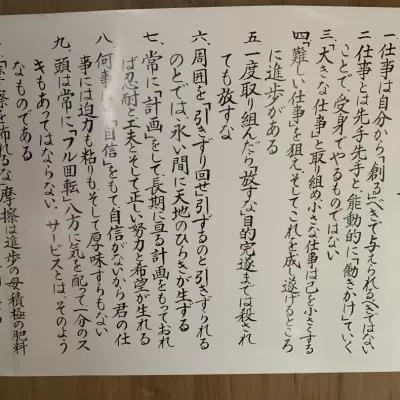 一、仕事は自分から「創る」べきで与えられるべきではない
二、仕事とは先手先手と、能動的に「働きかけ」ていく
ことで、受身でやるものではない
三、「大きな仕事」と取り組め小さな仕事は己を小さくする
四、「難しい仕事」を狙え、そしてこれを成し遂げるところ
に進歩がある
五、一度取り組んだら「放すな」目的完遂までは殺され
ても放すな
六、周囲を「引きずり回せ」引ずるのと引きずられる
のとでは、永い間に天地のひらきが生ずる
七、常に「計画」をもて長期に亘る計画をもっておれ
ば忍耐と工夫とそして正しい努力と希望が生れる
八、何事も「自信」をもて、自信がないから君の仕
事には迫力も粘りも、そして厚味すらもない
九、頭は常に「フル回転」八方に気を配って一分のス
キもあってはならない、サービスとは、そのよう
なものである
「摩擦を怖れるな」摩擦は進歩の母積極の肥料